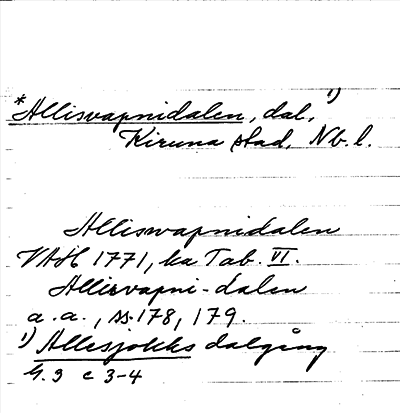 *Allisvapnidalen, dal, 1)
Kiruna stad, Nb. l.
Alliswapnidalen
VAH 1771, ka Tab. VI.
Allisvapni-dalen
a.a., ss 178, 179.
1) Allesjokks dalgång
G. 3 c 3-4